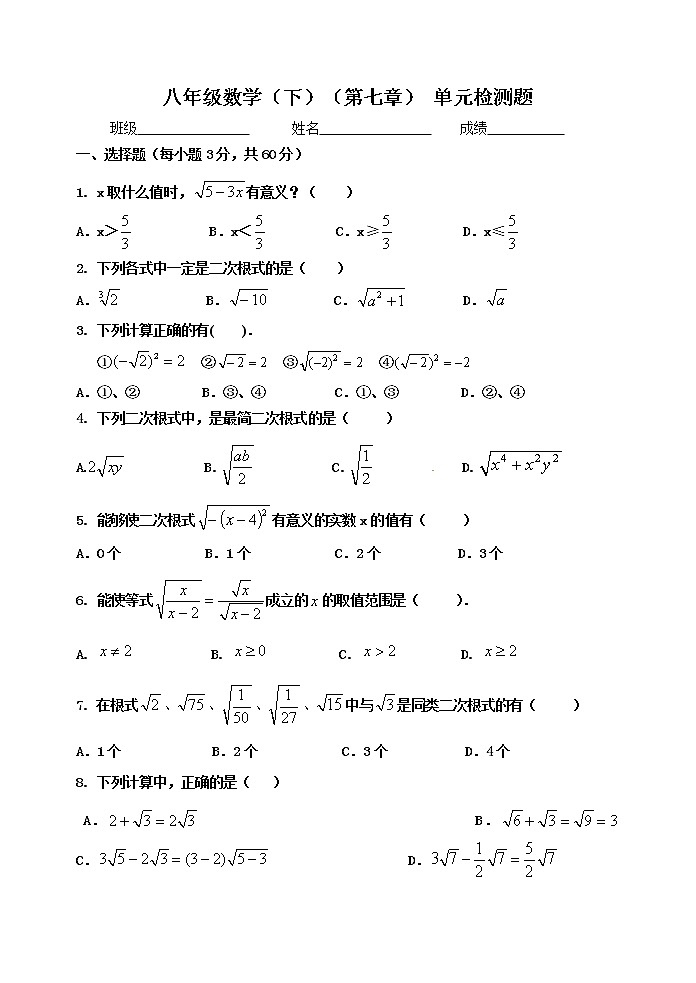 八年级数学（下）（第七章） 单元检测题
班级________________ 姓名________________ 成绩___________
一、选择题（每小题3分，共60分）
1. x取什么值时，√(5−3x)有意义？（ ）
A．x＞5/3 B．x＜5/3 C．x≥5/3 D．x≤5/3
2. 下列各式中一定是二次根式的是（ ）
A．∛2 B．√(−10) C．√(a²+1) D．√a
3. 下列计算正确的有( ).
①(−√2)²=2 ②√−2=2 ③√(−2)²=2 ④(√−2)²=−2
A．①、② B．③、④ C．①、③ D．②、④
4. 下列二次根式中，是最简二次根式的是（ ）
A.2√(xy) B．√(ab/2) C．√(1/2) D．√(x⁴+x²y²)
5. 能够使二次根式√(−(x−4)²)有意义的实数x的值有（ ）
A．0个 B．1个 C．2个 D．3个
6. 能使等式√(x/(x−2))=√x/√(x−2)成立的x的取值范围是（ ）.
A. x≠2 B. x≥0 C. x>2 D. x≥2
7. 在根式√2、√75、√(1/50)、√(1/27)、√15中与√3是同类二次根式的有（ ）
A．1个 B．2个 C．3个 D．4个
8. 下列计算中，正确的是（ ）
A．2+√3=2√3 B．√6+√3=√9=3
C．3√5−2√3=(3−2)√(5−3) D．3√7−(1/2)√7=(5/2)√7